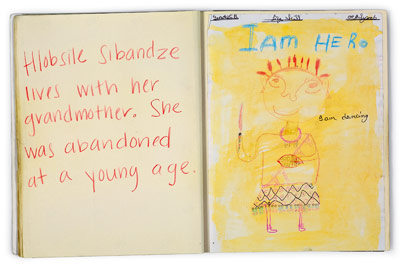 Hlobsile Sibandze
lives with her
grandmother. She
was abandoned
at a young age.
I AM HERO
I am dancing